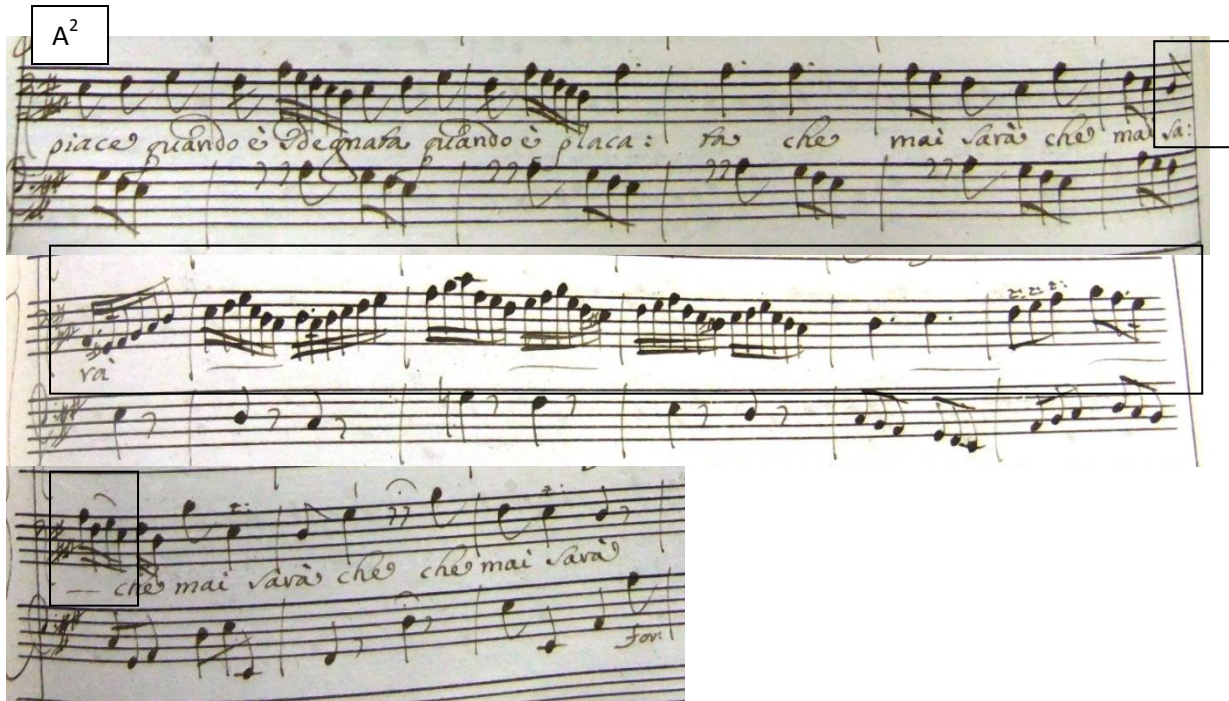 A²
piace quando è sdegnata quando è placa: ta che mai sarà che mai sa:
rà
— che mai sarà che che mai sarà
for: